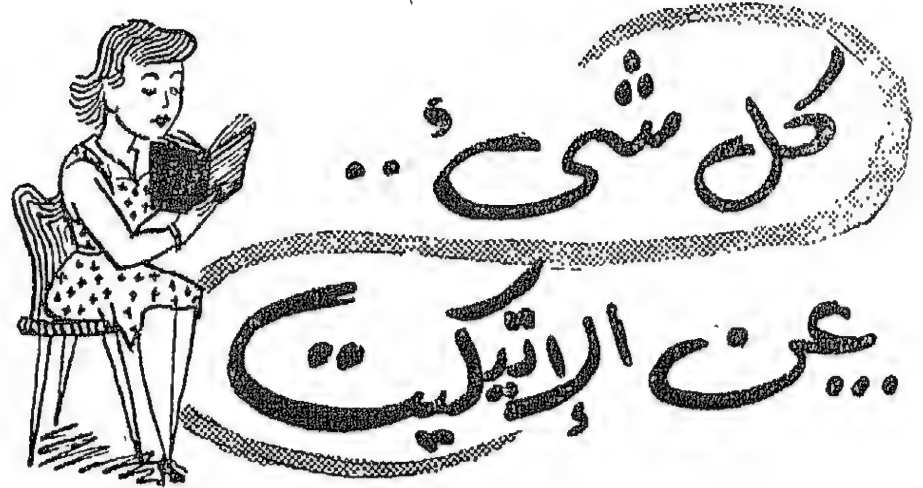 كل شىء ..
.. عن الإتيكيت